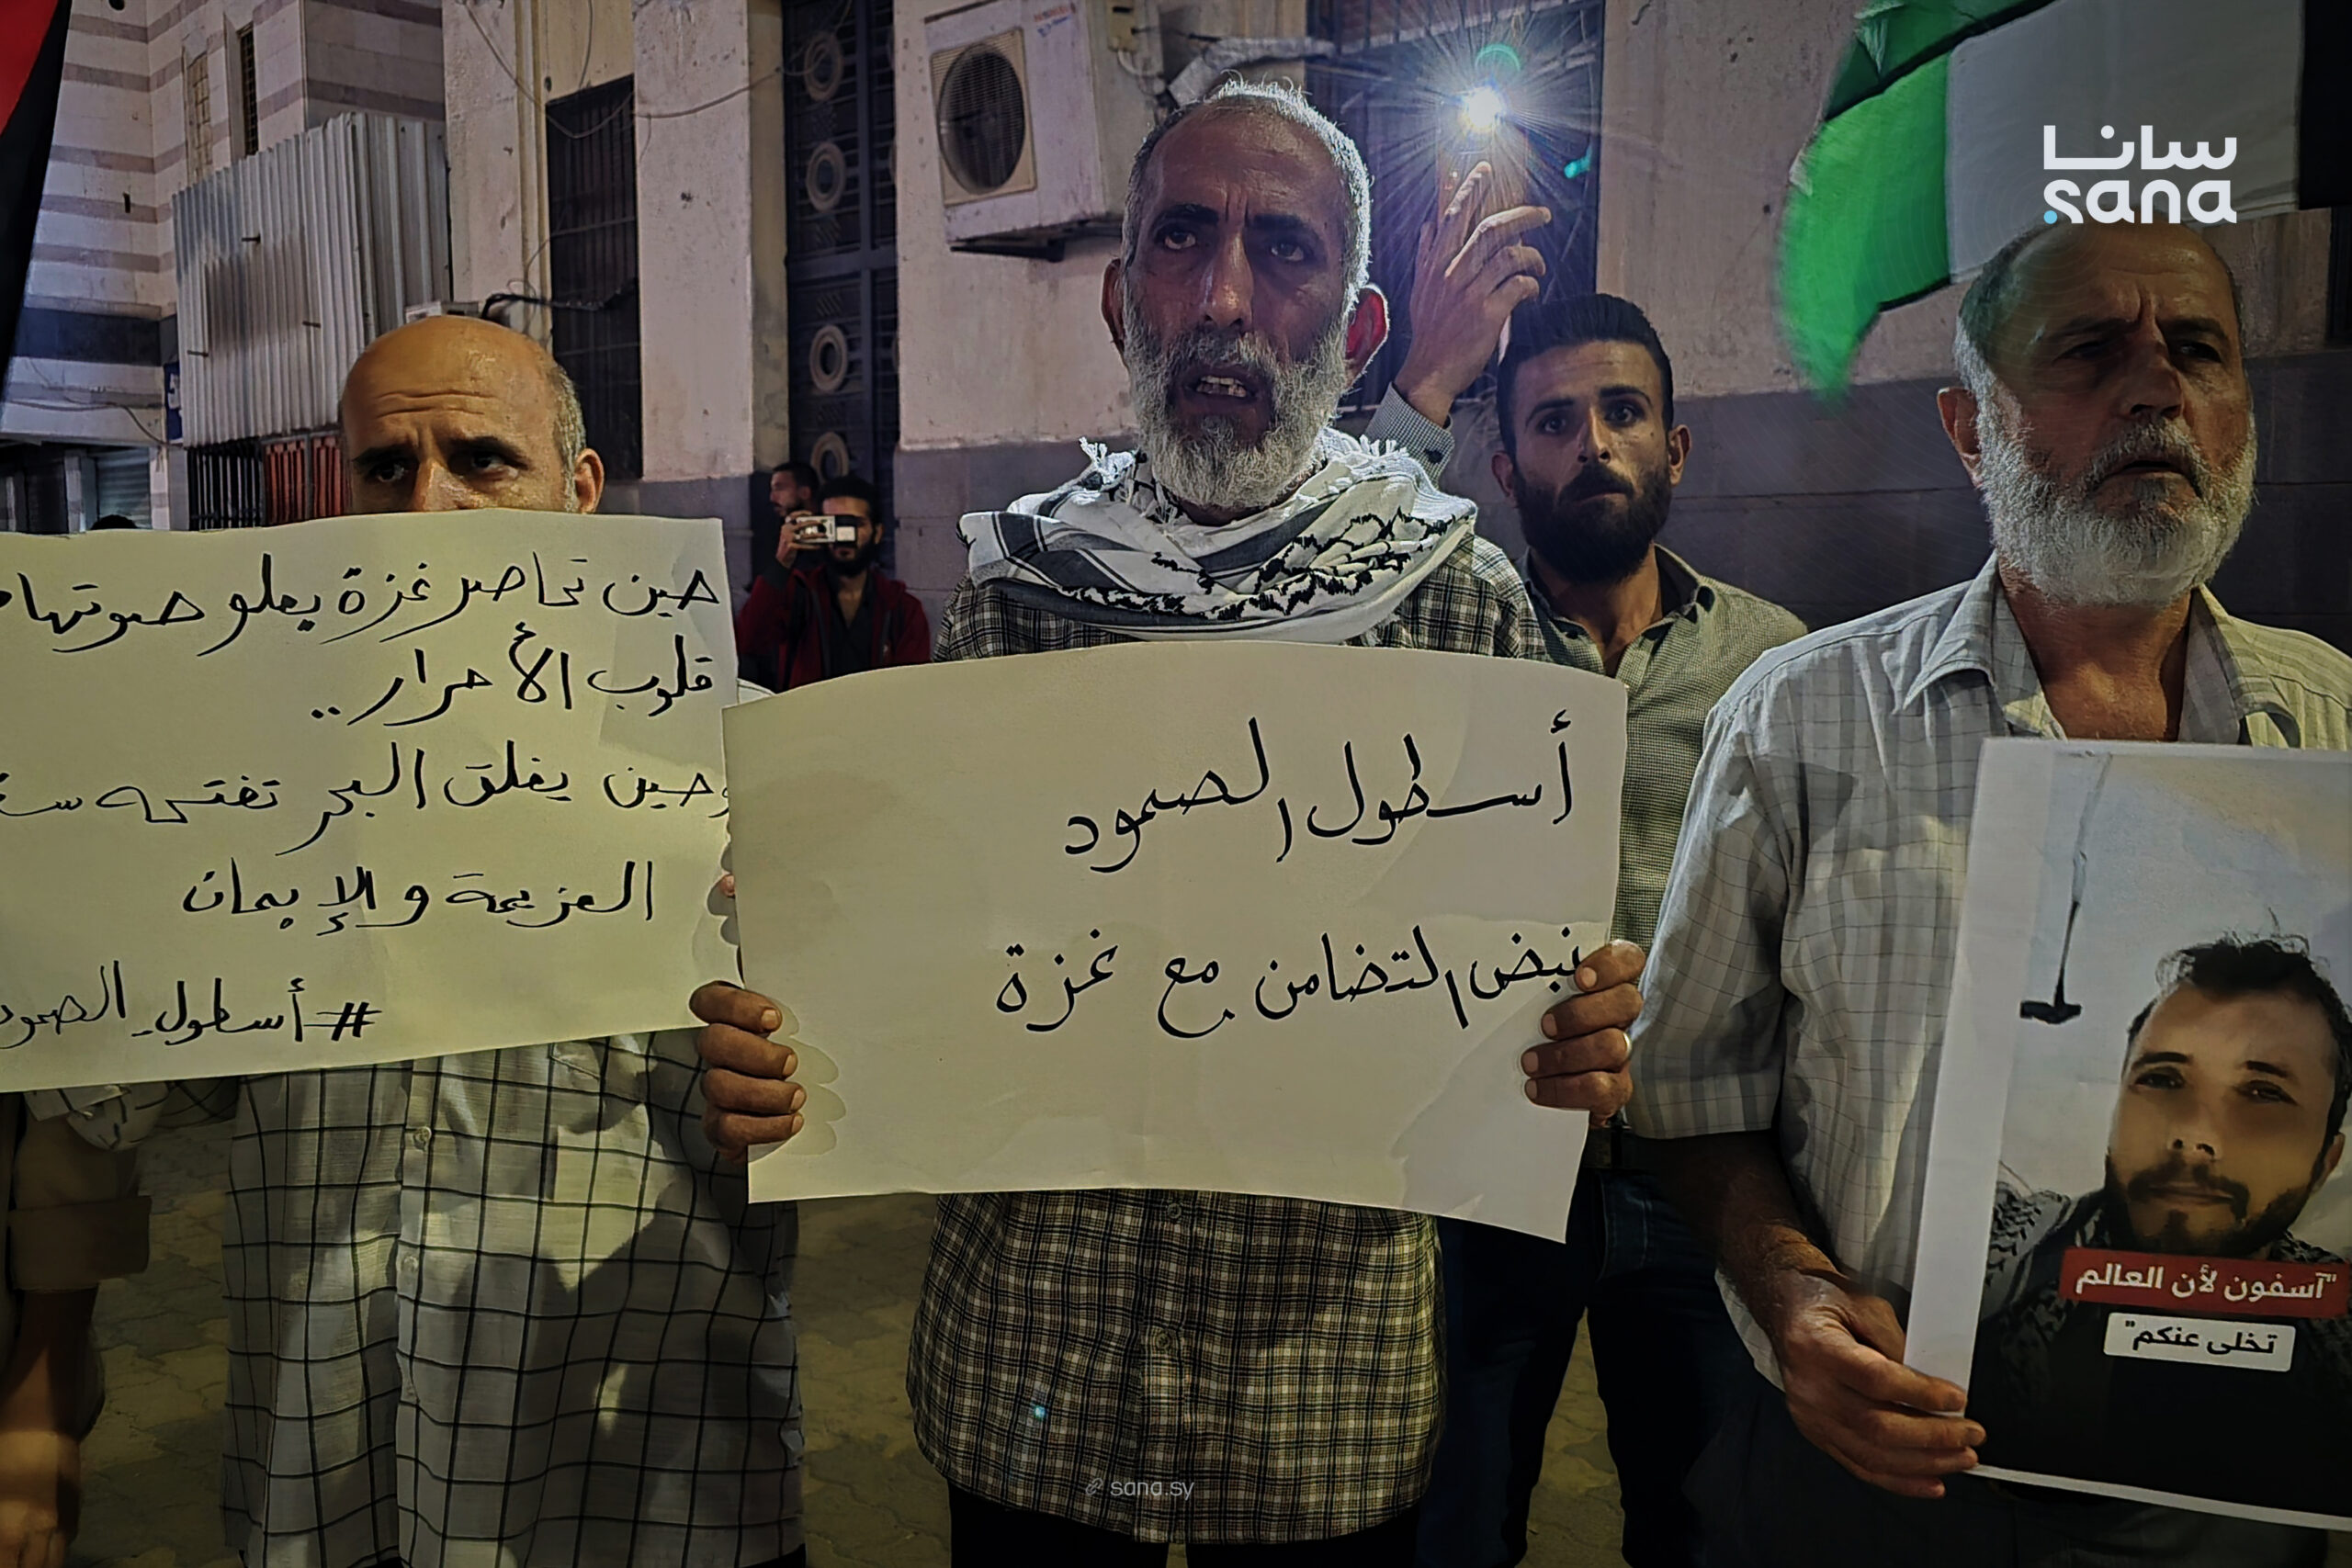 سانا
sana
حين تحاصر غزة يعلو صوتها
قلوب الأحرار..
وحين يغلق البحر تفتحه
العزيمة والإيمان
#أسطول_الصمود
أسطول الصمود
نبض التضامن مع غزة
"آسفون لأن العالم
تخلى عنكم"
sana.sy